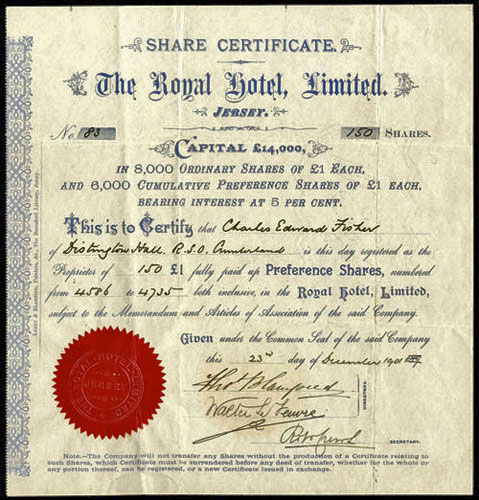 SHARE CERTIFICATE.
The Royal Hotel, Limited.
JERSEY.
No. 83 150 SHARES.
CAPITAL £14,000,
IN 8,000 ORDINARY SHARES OF £1 EACH,
AND 6,000 CUMULATIVE PREFERENCE SHARES OF £1 EACH,
BEARING INTEREST AT 5 PER CENT.
This is to Certify that Charles Edward Fisher
of Distington Hall. R.S.O. Cumberland is this day registered as the
Proprietor of 150 £1 fully paid up Preference Shares, numbered
from 4586 to 4735 both inclusive, in the Royal Hotel, Limited,
subject to the Memorandum and Articles of Association of the said Company.
Given under the Common Seal of the said Company
this 23rd day of December 1901
DIRECTORS.
SECRETARY.
THE ROYAL HOTEL LIMITED
JERSEY
Note.—The Company will not transfer any Shares without the production of a Certificate relating to
such Shares, which Certificate must be surrendered before any deed of transfer, whether for the whole or
any portion thereof, can be registered, or a new Certificate issued in exchange.